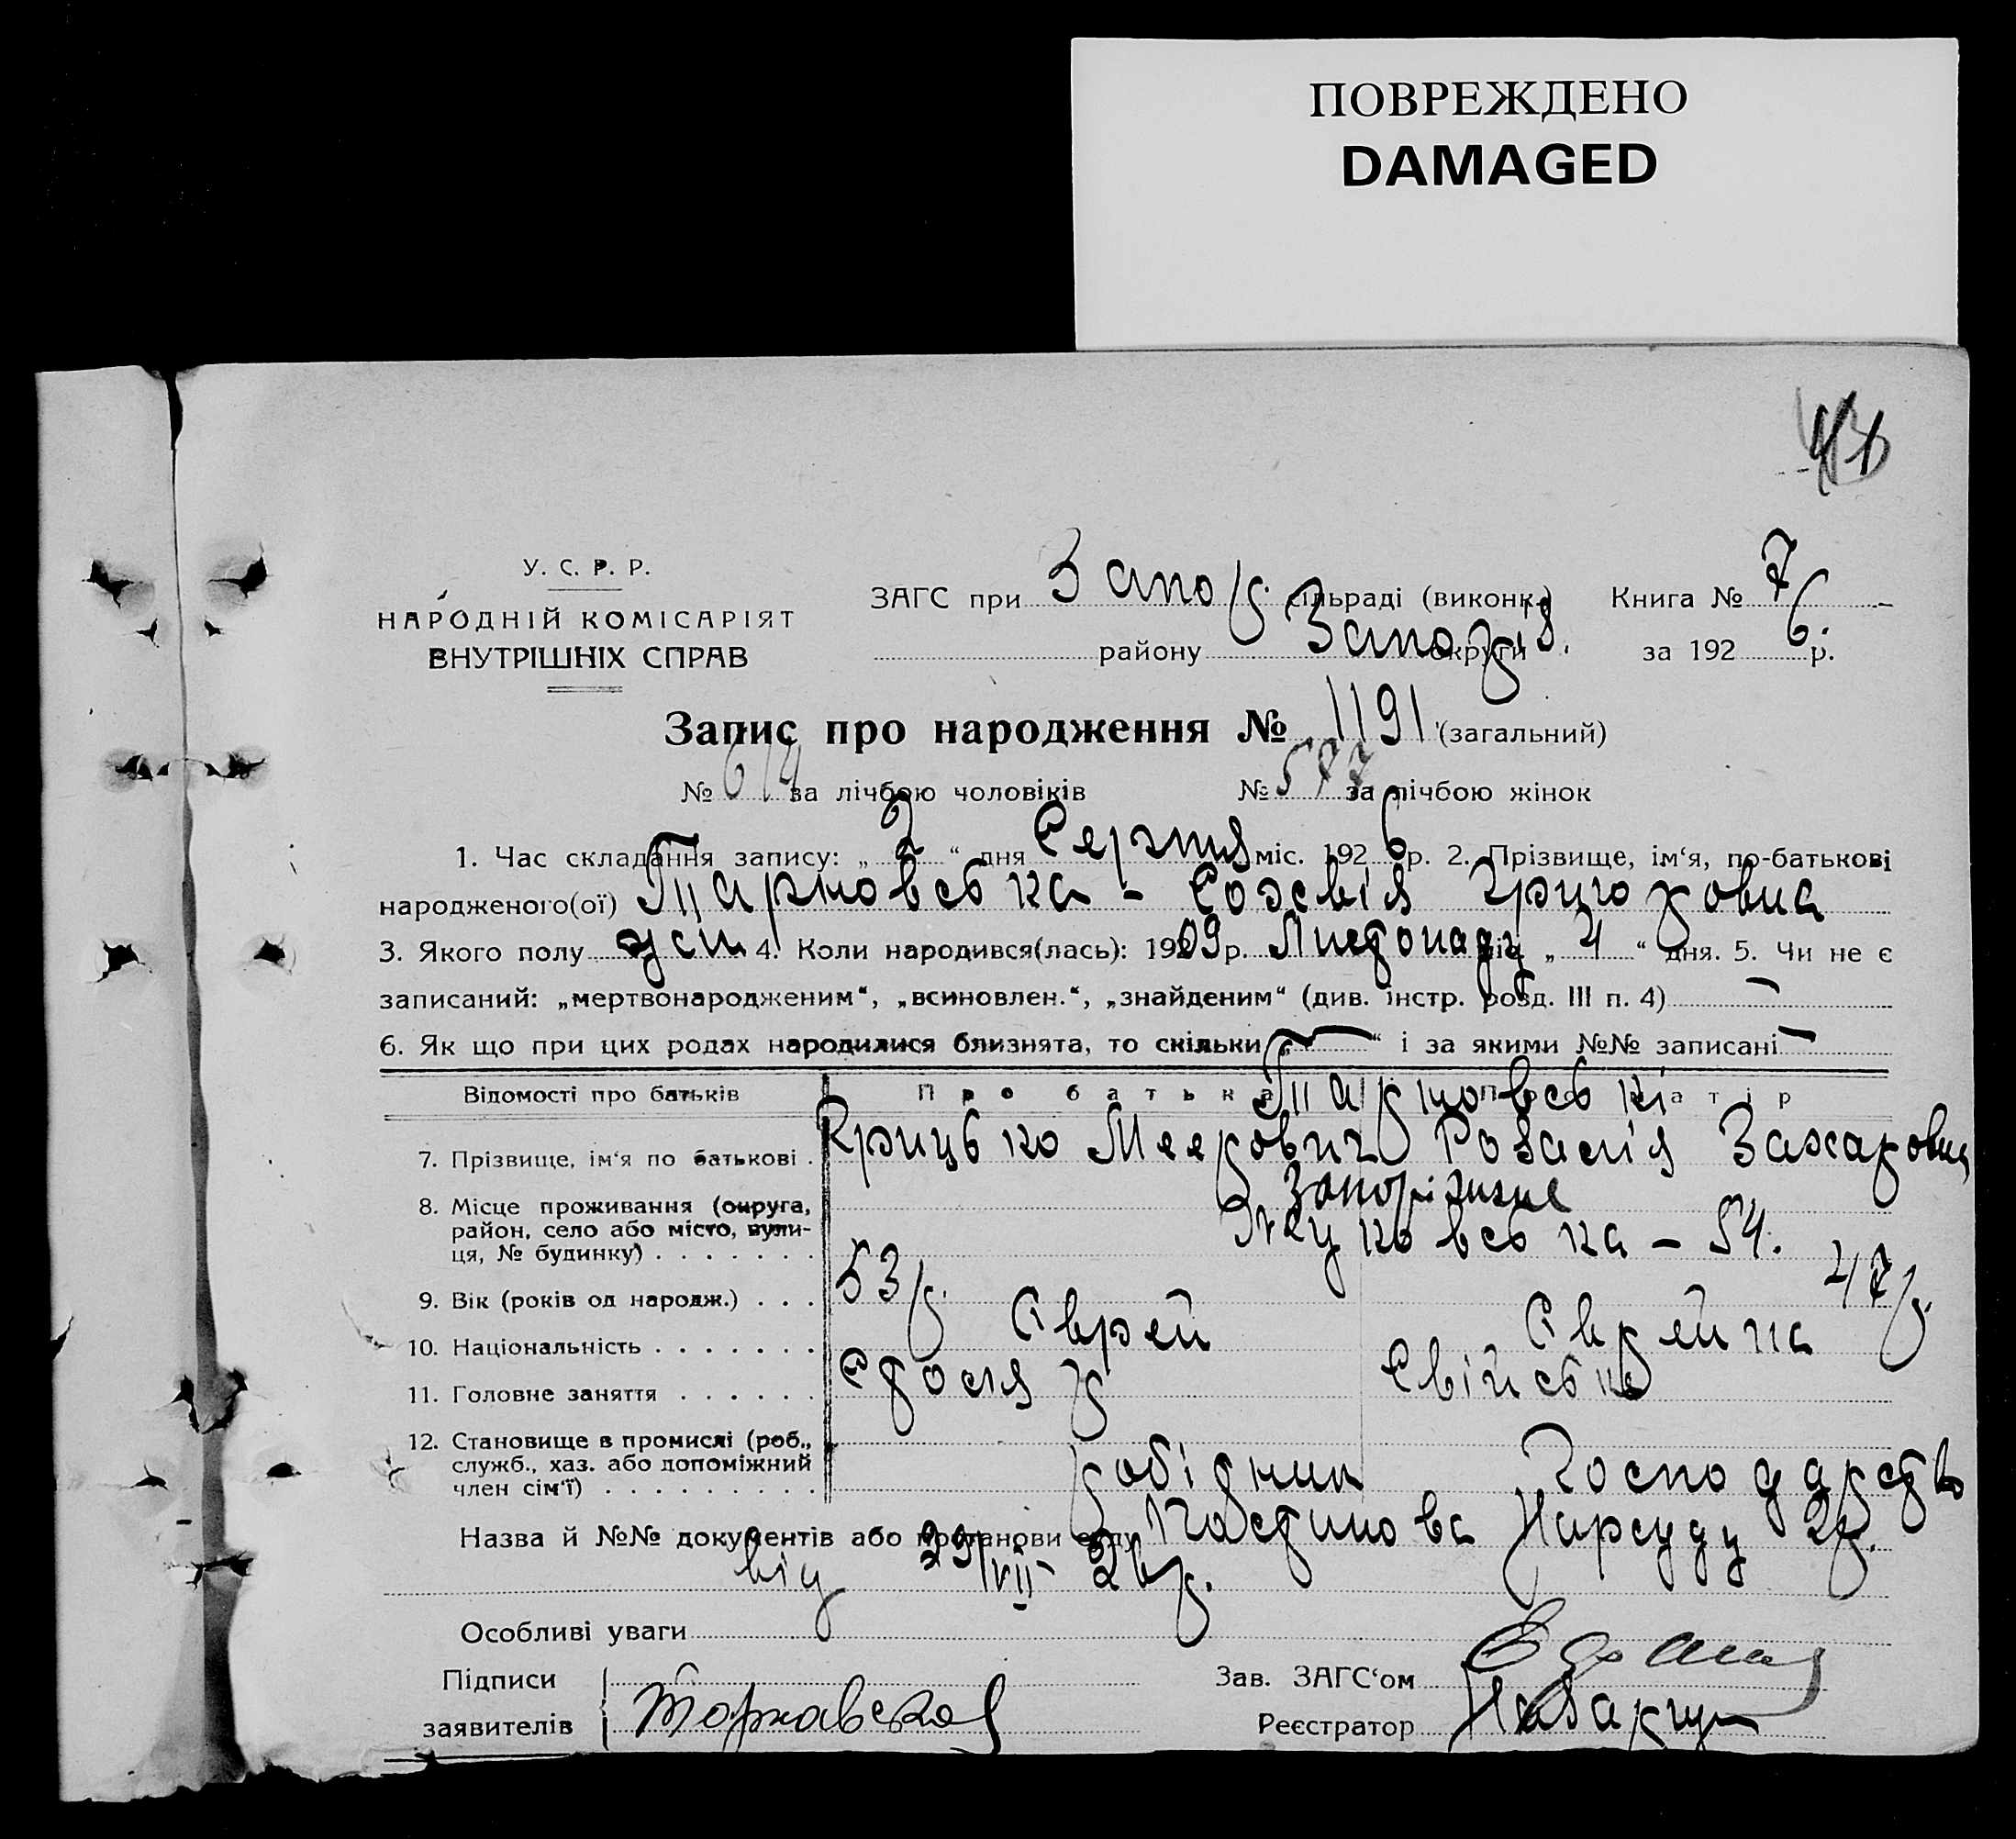 ПОВРЕЖДЕНО
DAMAGED
У. С. Р. Р.
НАРОДНІЙ КОМІСАРІЯТ
ВНУТРІШНІХ СПРАВ
ЗАГС при Запор. сільраді (виконк.) Книга № 7
району Запоріз. округи за 1926 р.
Запис про народження № 1191 (загальний)
№ 614 за лічбою чоловіків № 577 за лічбою жінок
1. Час складання запису: „ 2 “ дня Серпня міс. 1926 р. 2. Прізвище, ім‘я, по-батькові
народженого(ої) Тарновська - Григоровна
3. Якого полу жін 4. Коли народився(лась): 1909 р. Листопаду міс. „ 4 “ дня. 5. Чи не є
записаний: „мертвонародженим“, „всиновлен.“, „знайденим“ (див. інстр. розд. III п. 4) —
6. Як що при цих родах народилися близнята, то скільки „ — “ і за якими №№ записані —
Відомості про батьків Про батька Про матір
Тарновські
7. Прізвище, ім‘я по батькові . Грицько Меерович Розалія Захаровна
8. Місце проживання (округа,
район, село або місто, вули-
ця, № будинку) . . . . . . .
Запоріжжє
Жуковська – 54.
9. Вік (років од народж.) . . . 53 р. 47 р.
10. Національність . . . . . . . Єврей Єврейка
11. Головне заняття . . . . . . Столяр Свійське
12. Становище в промислі (роб.,
служб., хаз. або допоміжний
член сім‘ї) . . . . . . . . .
робітник Господарство
Назва й №№ документів або постанови суду Постанова Нарсуду 2р.
від 29/VII 26 р.
Особливі уваги
Підписи
заявителів
Зав. ЗАГС‘ом
Реєстратор